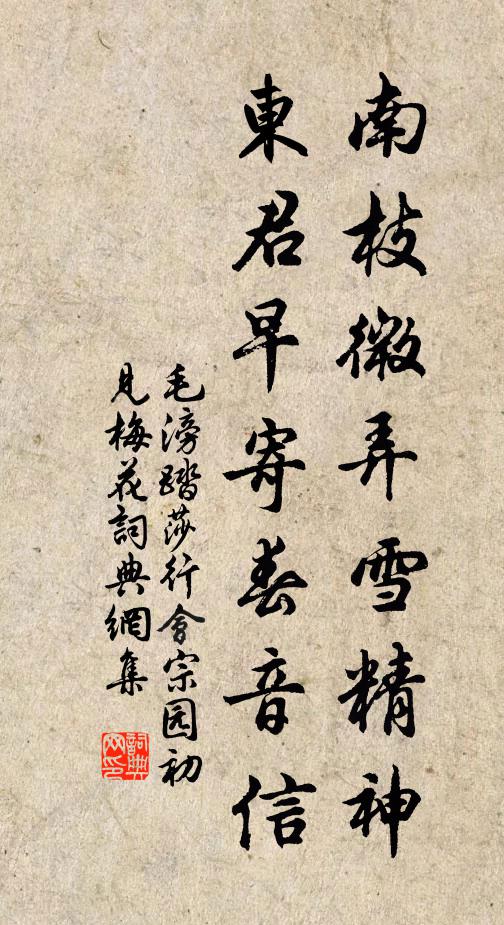 南枝微弄雪精神
東君早寄春音信
毛滂踏莎行會宗园初
見梅花詞典網集
詞典网印